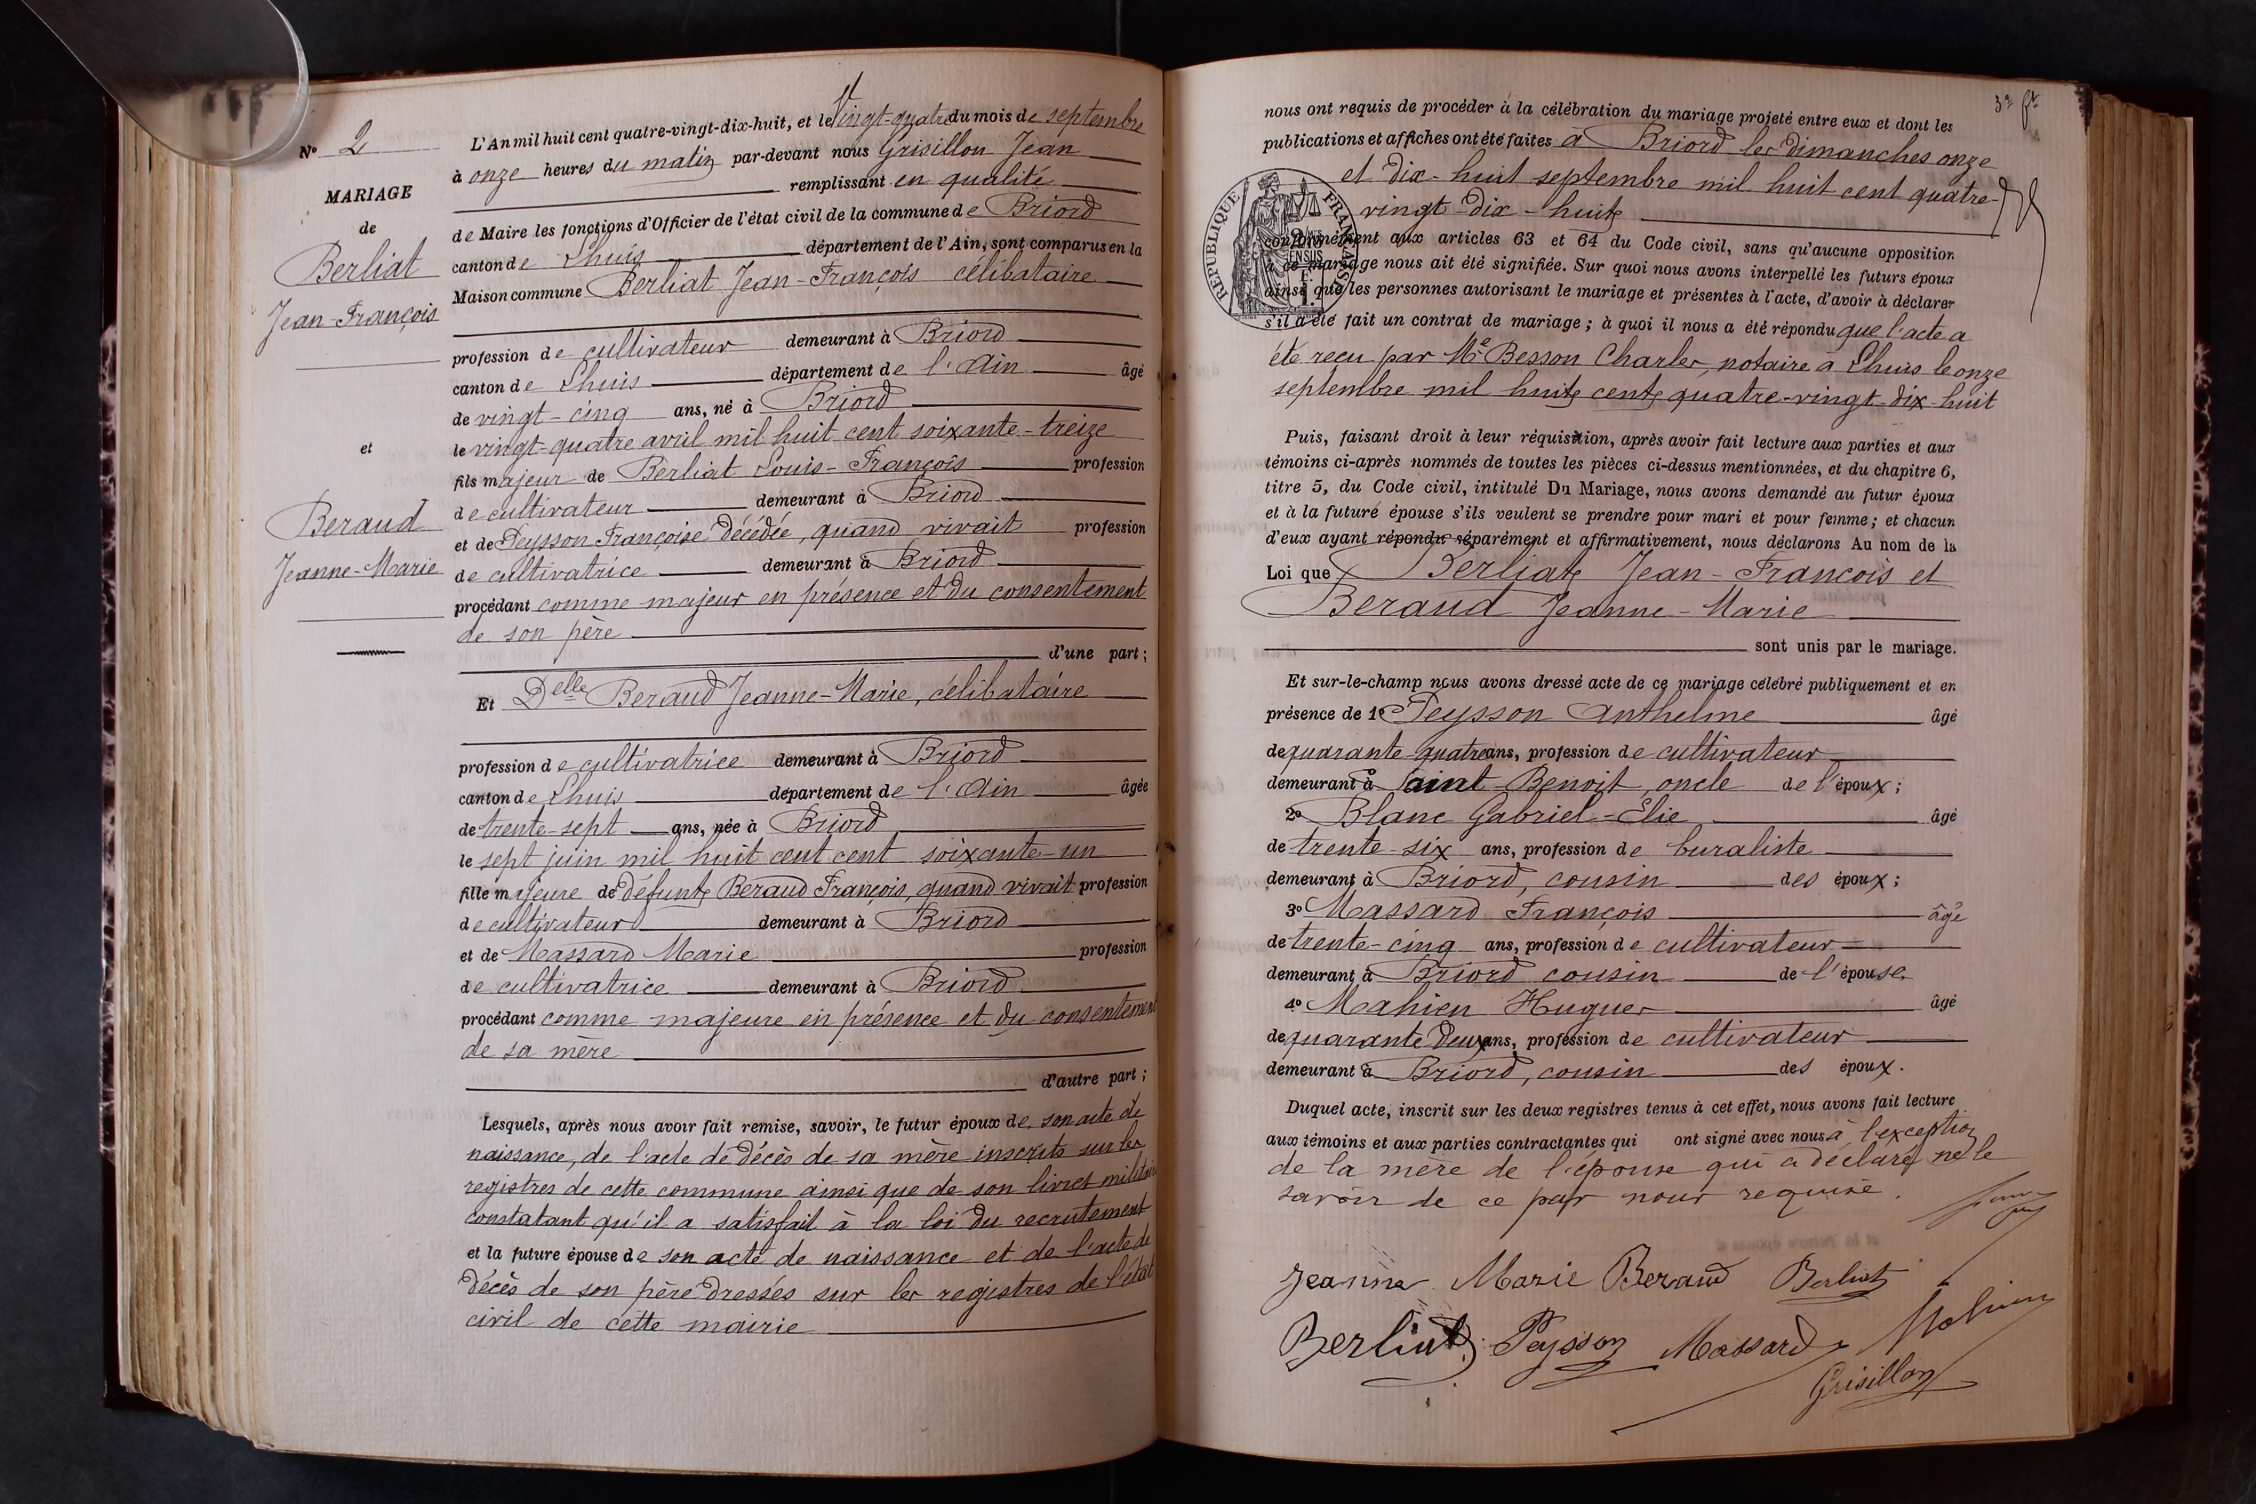 N° 2
MARIAGE
de
Berliat
Jean-François
et
Beraud
Jeanne-Marie
L'An mil huit cent quatre-vingt-dix-huit, et le Vingt-quatre du mois de septembre
à onze heures du matin par-devant nous Grisillon Jean
remplissant en qualité
de Maire les fonctions d'Officier de l'état civil de la commune de Briord
canton de Lhuis département de l'Ain, sont comparus en la
Maison commune Berliat Jean-François célibataire
profession de cultivateur demeurant à Briord
canton de Lhuis département de l'Ain âgé
de vingt-cinq ans, né à Briord
le vingt-quatre avril mil huit cent soixante-treize
fils majeur de Berliat Louis-François profession
de cultivateur demeurant à Briord
et de Peysson Françoise décédée, quand vivait profession
de cultivatrice demeurant à Briord
procédant comme majeur en présence et du consentement
de son père
d'une part ;
Et Delle Beraud Jeanne-Marie, célibataire
profession de cultivatrice demeurant à Briord
canton de Lhuis département de l'Ain âgée
de trente-sept ans, née à Briord
le sept juin mil huit cent cent soixante-un
fille majeure de défunt Beraud François, quand vivait profession
de cultivateur demeurant à Briord
et de Massard Marie profession
de cultivatrice demeurant à Briord
procédant comme majeure en présence et du consentement
de sa mère
d'autre part ;
Lesquels, après nous avoir fait remise, savoir, le futur époux de son acte de
naissance, de l'acte de décès de sa mère inscrits sur les
registres de cette commune ainsi que de son livret militaire
constatant qu'il a satisfait à la loi du recrutement
et la future épouse de son acte de naissance et de l'acte de
décès de son père dressés sur les registres de l'état
civil de cette mairie
3e ft
nous ont requis de procéder à la célébration du mariage projeté entre eux et dont les
publications et affiches ont été faites à Briord les dimanches onze
et dix-huit septembre mil huit cent quatre-
vingt-dix-huit
RÉPUBLIQUE FRANÇAISE
conformément aux articles 63 et 64 du Code civil, sans qu'aucune opposition
à ce mariage nous ait été signifiée. Sur quoi nous avons interpellé les futurs époux
ainsi que les personnes autorisant le mariage et présentes à l'acte, d'avoir à déclarer
s'il a été fait un contrat de mariage ; à quoi il nous a été répondu que l'acte a
été reçu par Me Besson Charles, notaire à Lhuis le onze
septembre mil huit cent quatre-vingt-dix-huit
Puis, faisant droit à leur réquisition, après avoir fait lecture aux parties et aux
témoins ci-après nommés de toutes les pièces ci-dessus mentionnées, et du chapitre 6,
titre 5, du Code civil, intitulé Du Mariage, nous avons demandé au futur époux
et à la future épouse s'ils veulent se prendre pour mari et pour femme ; et chacun
d'eux ayant répondu séparément et affirmativement, nous déclarons Au nom de la
Loi que Berliat Jean-François et
Beraud Jeanne-Marie
sont unis par le mariage.
Et sur-le-champ nous avons dressé acte de ce mariage célébré publiquement et en
présence de 1° Peysson Anthelme âgé
de quarante-quatre ans, profession de cultivateur
demeurant à Saint-Benoit, oncle de l'époux ;
2° Blanc Gabriel-Elie âgé
de trente-six ans, profession de buraliste
demeurant à Briord, cousin des époux ;
3° Massard François âgé
de trente-cinq ans, profession de cultivateur
demeurant à Briord cousin de l'épouse
4° Mahieu Hugues âgé
de quarante deux ans, profession de cultivateur
demeurant à Briord, cousin des époux.
Duquel acte, inscrit sur les deux registres tenus à cet effet, nous avons fait lecture
aux témoins et aux parties contractantes qui ont signé avec nous à l'exception
de la mère de l'épouse qui a déclaré ne le
savoir de ce par nous requise.
Jeanne Marie Beraud Berliat
Berliat Peysson Massard Mahieu
Grisillon